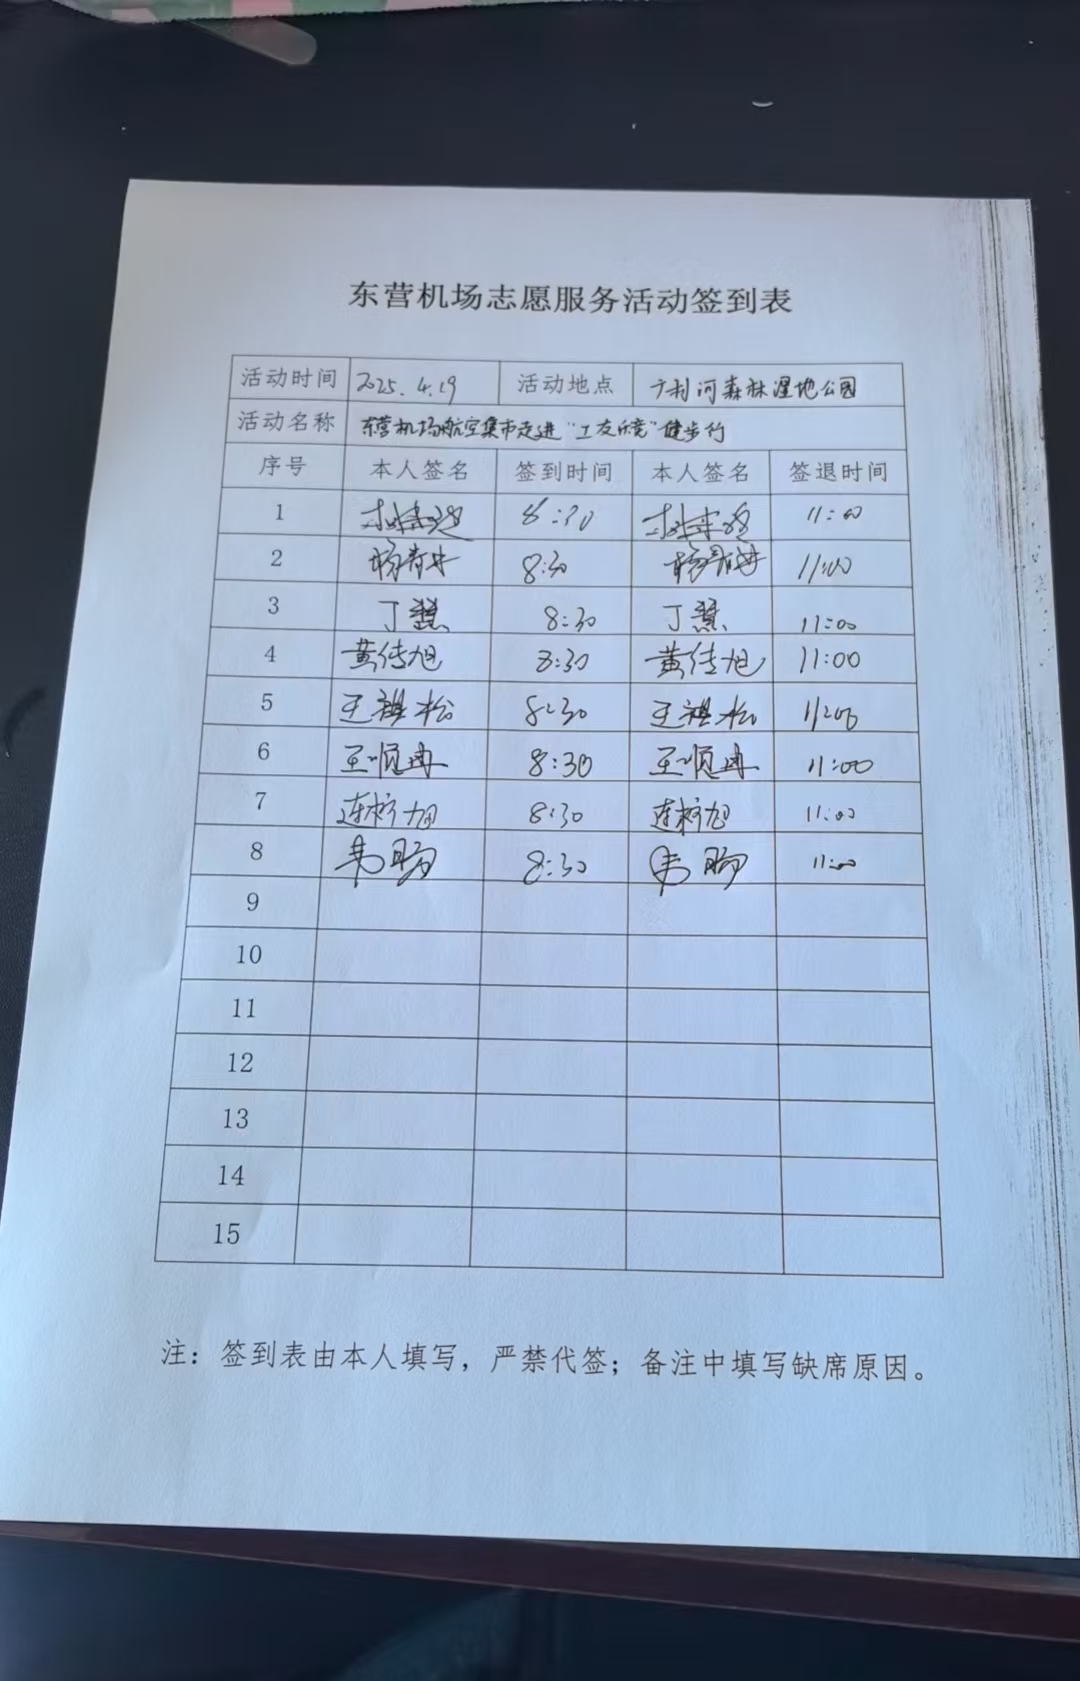 东营机场志愿服务活动签到表
活动时间 2025.4.19 活动地点 广利河森林湿地公园
活动名称 东营机场航空集市走进"工友乐竞"健步行
序号 本人签名 签到时间 本人签名 签退时间
1 8:30 11:00
2 8:30 11:00
3 丁慧 8:30 丁慧 11:00
4 黄传旭 8:30 黄传旭 11:00
5 王祺松 8:30 王祺松 11:00
6 王顺冉 8:30 王顺冉 11:00
7 连 旭 8:30 连 旭 11:00
8 8:30 11:00
9
10
11
12
13
14
15
注：签到表由本人填写，严禁代签；备注中填写缺席原因。